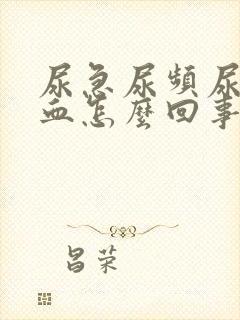 尿急尿頻尿
血怎麼回事
昌荣